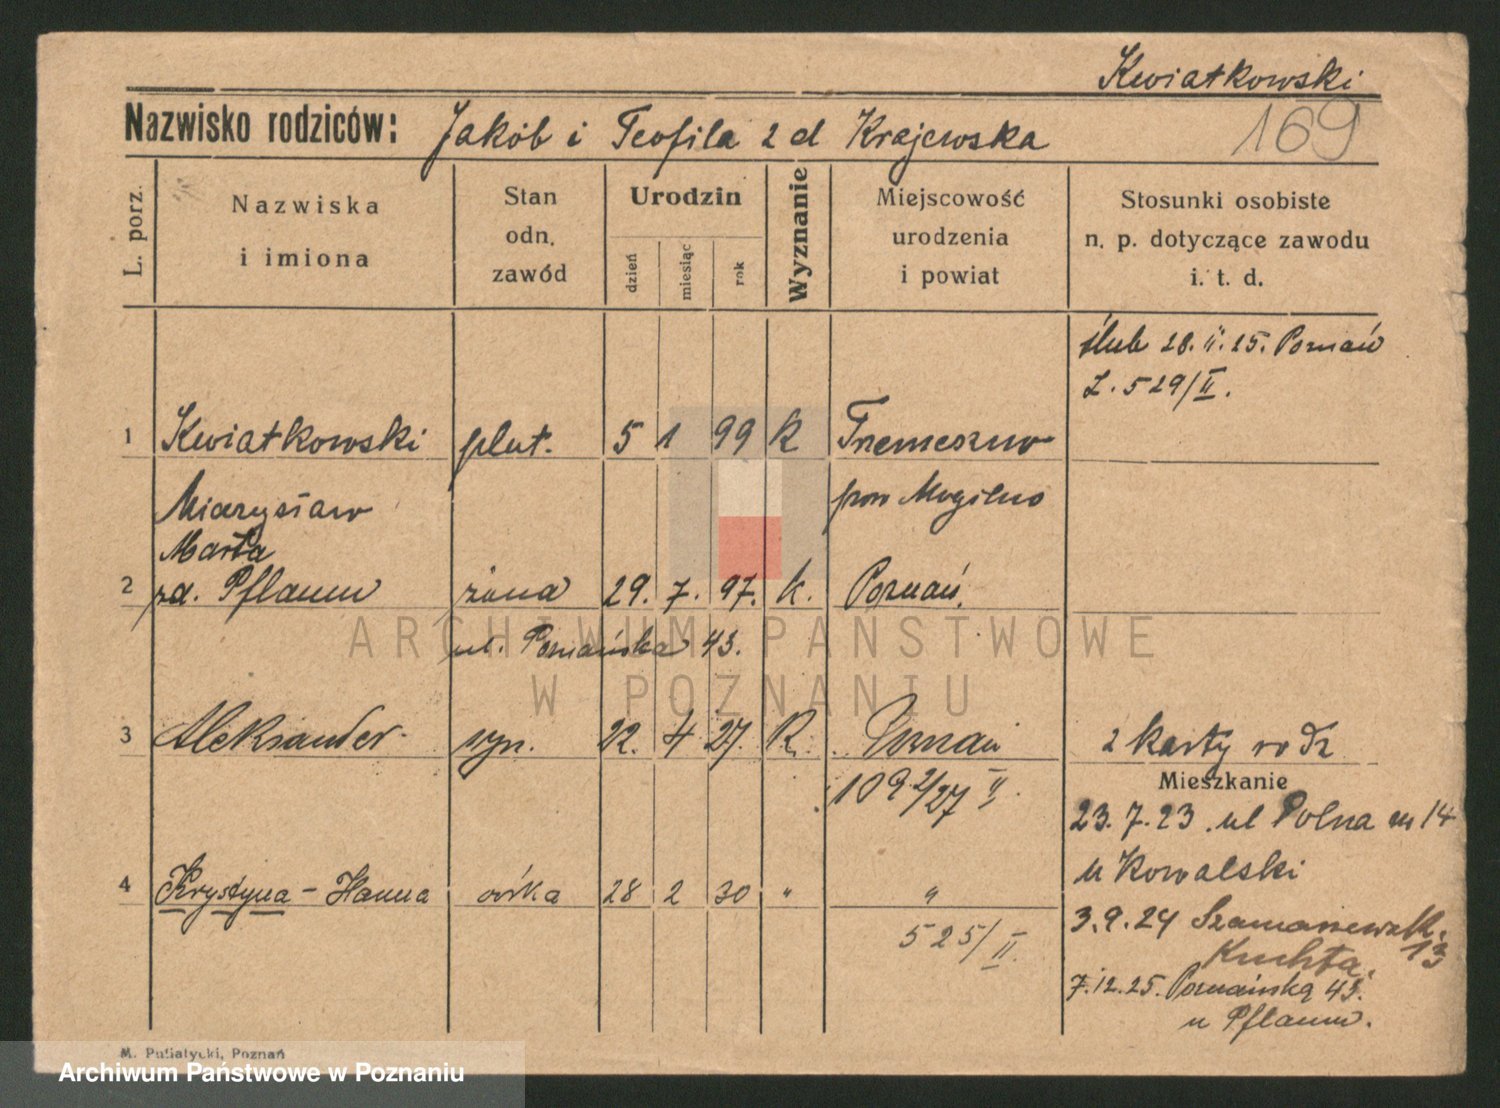 Kwiatkowski
Nazwisko rodziców: Jakób i Teofila z d Krajewska
169
L. porz.
Nazwiska
i imiona
Stan
odn.
zawód
Urodzin
dzień
miesiąc
rok
Wyznanie
Miejscowość
urodzenia
i powiat
Stosunki osobiste
n. p. dotyczące zawodu
i. t. d.
ślub 28. II. 25. Poznań
L. 529/II.
1 Kwiatkowski plut. 5 1 99 k Trzemeszno
Mieczysław pow Mogilno
Marta
2 zd. Pflaum żona 29. 7. 97. k. Poznań.
ul. Poznańska 43.
ARCHIWUM PAŃSTWOWE
W POZNANIU
3 Aleksander syn. 22. 4. 27. k. Poznań 2 karty rodz
1092/27 II.
Mieszkanie
23. 7. 23. ul Polna m 14
u Kowalski
4 Krystyna - Hanna córka 28 2 30 " "
525/II.
3. 9. 24 13
Kuchta.
7. 12. 25. Poznańska 43.
u Pflaum.
M. Putiatycki, Poznań
Archiwum Państwowe w Poznaniu